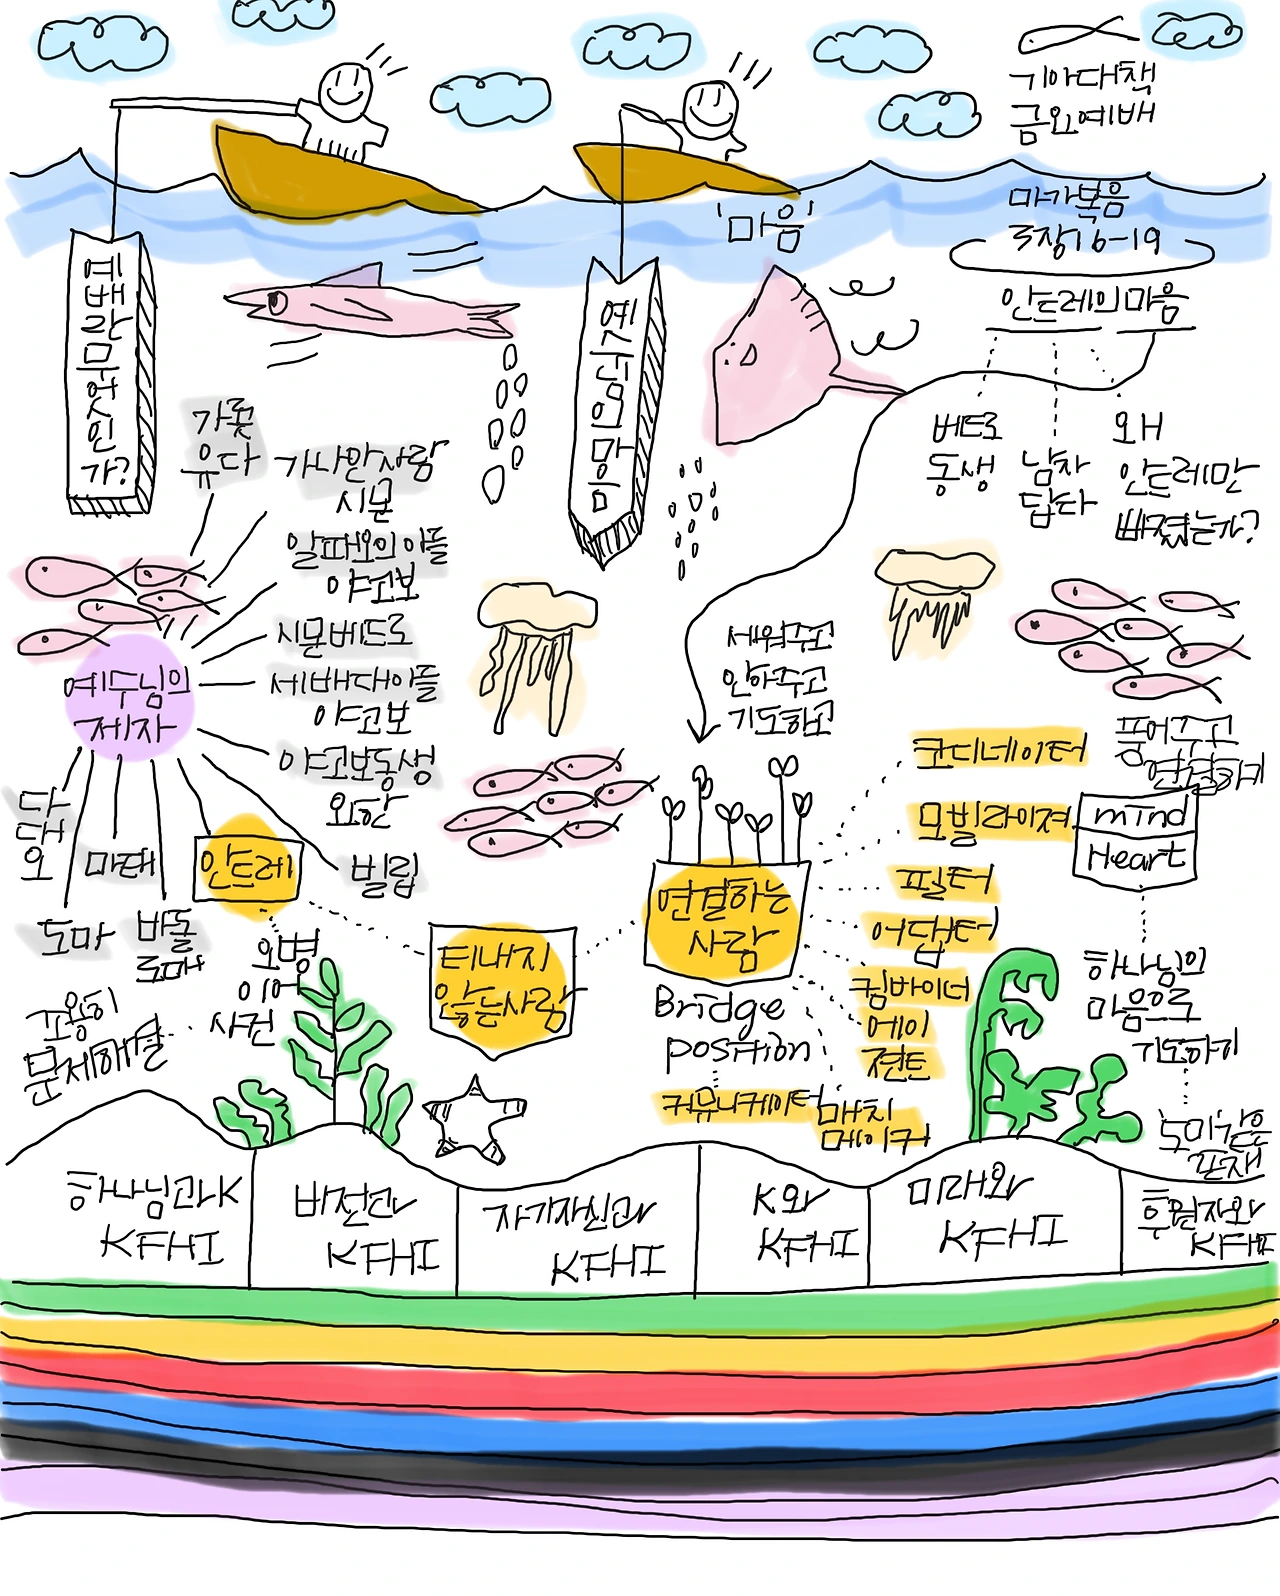 기아대책
금요예배
마가복음
3장16-19
'마음'
안드레의 마음
베드로
동생
남자
답다
왜
안드레만
빠졌는가?
예배란 무엇인가?
예수님의 마음
가룟
유다
가나안 사람
시몬
알패오의 아들
야고보
시몬 베드로
세배대 아들
야고보
야고보 동생
요한
빌립
예수님의
제자
다
대
오
도마
마태
바돌
로매
안드레
오병
이어
사건
조용히
문제해결
티내지
않는 사람
세워주고
안아주고
기도하고
연결하는
사람
Bridge
position
커뮤니케이터
코디네이터
모빌라이져
필터
어답터
컴바이너
에이
젼트
매치
메이커
품어주고
연결하기
mind
Heart
하나님의
마음으로
기도하기
하나님과
KFHI
비전과
KFHI
자기자신과
KFHI
K와
KFHI
미래와
KFHI
후원자와
KFHI